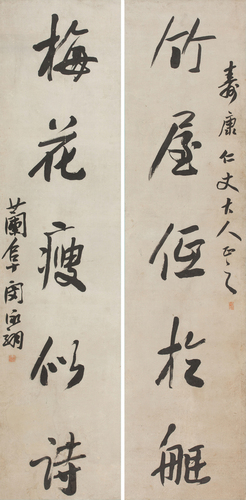 壽康仁丈大人正之
竹屋低於艇
梅花瘦似詩
蘭閔泳翊